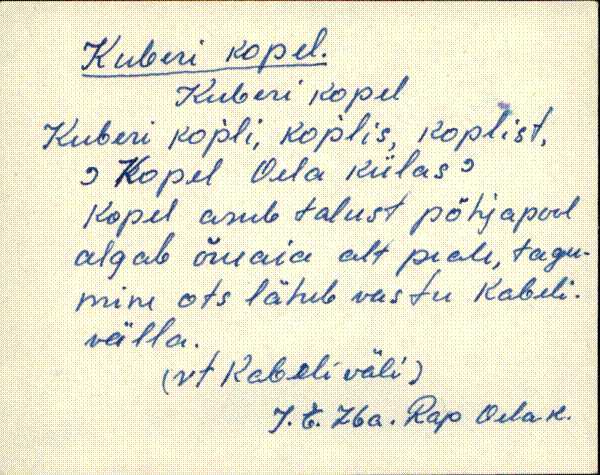 Kuberi kopel.
Kuberi kopel
Kuberi kop̀li, kop̀lis, koplist,
Kopel Oela külas
Kopel asub talust põhjapool
algab õueaia alt peale, tagu-
mine ots läheb vastu Kabeli-
välla.
(vt Kabeliväli)
Rap Oela k.